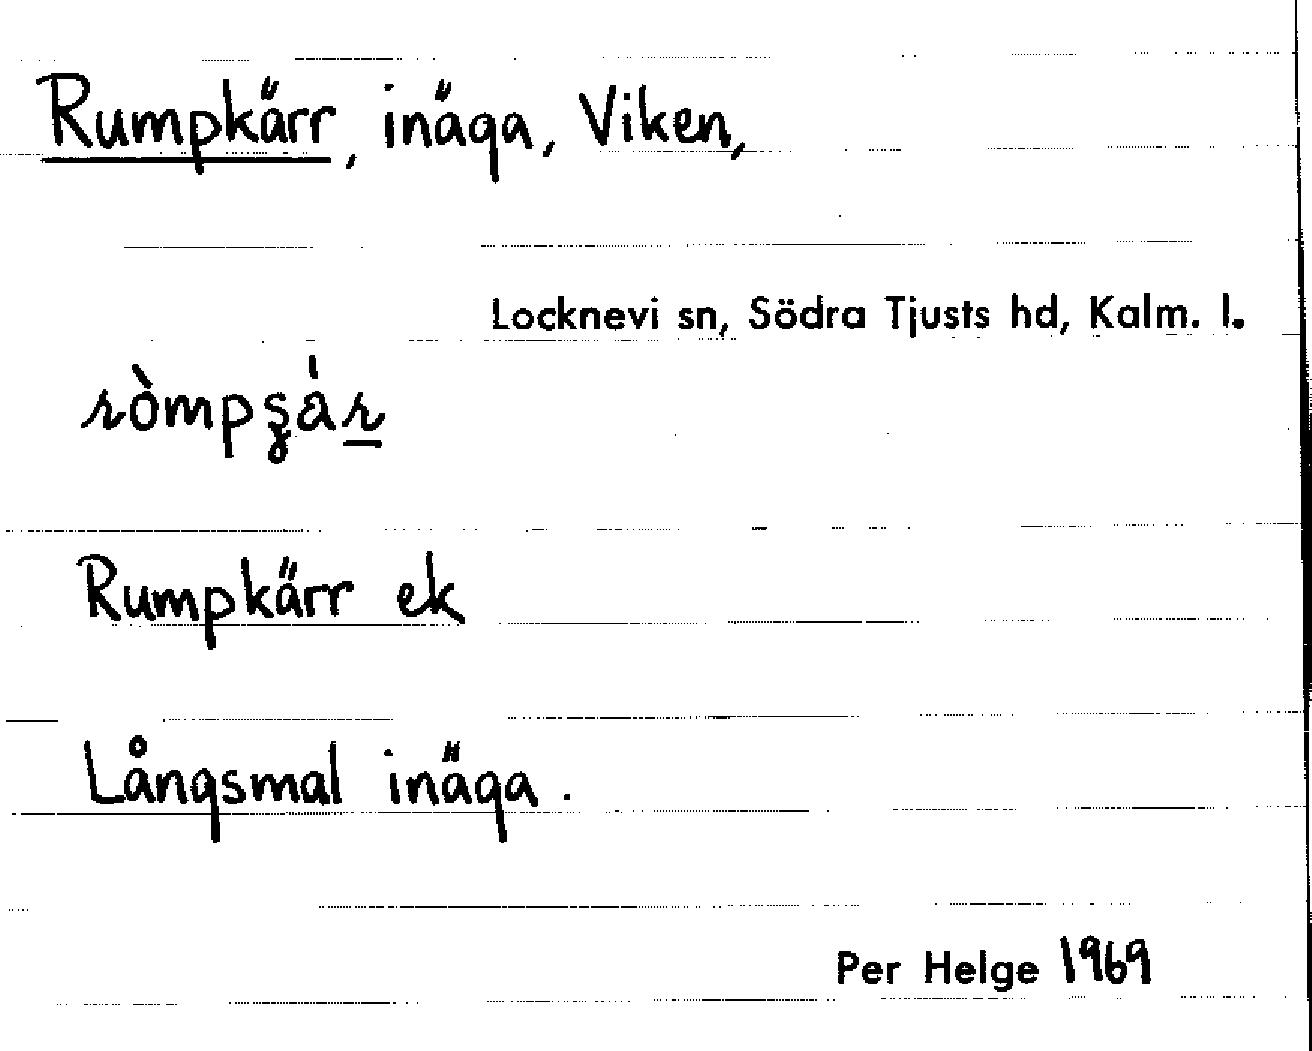 Rumpkärr, inäga, Viken,
Locknevi sn, Södra Tjusts hd, Kalm. l.
Rumpkärr ek
Långsmal inäga.
Per Helge 1969